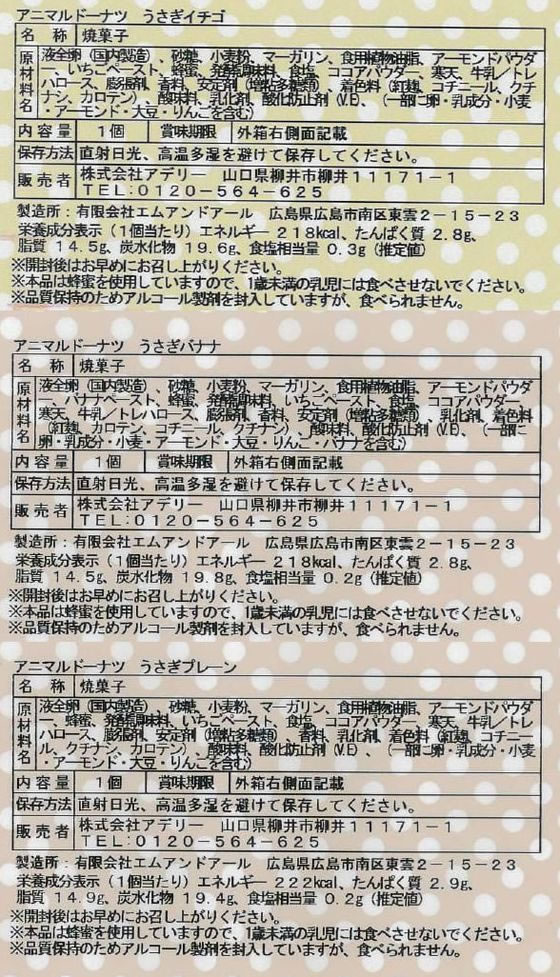 アニマルドーナツ　うさぎイチゴ
名　称　焼菓子
原材料名　液全卵（国内製造）、砂糖、小麦粉、マーガリン、食用植物油脂、アーモンドパウダ
ー、いちごペースト、蜂蜜、発酵調味料、食塩、ココアパウダー、寒天、牛乳／トレ
ハロース、膨張剤、香料、安定剤（増粘多糖類）、着色料（紅麹、コチニール、クチ
ナシ、カロテン）、酸味料、乳化剤、酸化防止剤（V.E）、（一部に卵・乳成分・小麦
・アーモンド・大豆・りんごを含む）
内容量　１個　賞味期限　外箱右側面記載
保存方法　直射日光、高温多湿を避けて保存してください。
販売者　株式会社アデリー　山口県柳井市柳井１１１７１－１
ＴＥＬ：０１２０－５６４－６２５
製造所：有限会社エムアンドアール　広島県広島市南区東雲２－１５－２３
栄養成分表示（１個当たり）エネルギー 218kcal、たんぱく質 2.8g、
脂質 14.5g、炭水化物 19.6g、食塩相当量 0.3g（推定値）
※開封後はお早めにお召し上がりください。
※本品は蜂蜜を使用していますので、1歳未満の乳児には食べさせないでください。
※品質保持のためアルコール製剤を封入していますが、食べられません。
アニマルドーナツ　うさぎバナナ
名　称　焼菓子
原材料名　液全卵（国内製造）、砂糖、小麦粉、マーガリン、食用植物油脂、アーモンドパウダ
ー、バナナペースト、蜂蜜、発酵調味料、いちごペースト、食塩、ココアパウダー、
寒天、牛乳／トレハロース、膨張剤、香料、安定剤（増粘多糖類）、乳化剤、着色料
（紅麹、カロテン、コチニール、クチナシ）、酸味料、酸化防止剤（V.E）、（一部に
卵・乳成分・小麦・アーモンド・大豆・りんご・バナナを含む）
内容量　１個　賞味期限　外箱右側面記載
保存方法　直射日光、高温多湿を避けて保存してください。
販売者　株式会社アデリー　山口県柳井市柳井１１１７１－１
ＴＥＬ：０１２０－５６４－６２５
製造所：有限会社エムアンドアール　広島県広島市南区東雲２－１５－２３
栄養成分表示（１個当たり）エネルギー 218kcal、たんぱく質 2.8g、
脂質 14.5g、炭水化物 19.8g、食塩相当量 0.2g（推定値）
※開封後はお早めにお召し上がりください。
※本品は蜂蜜を使用していますので、1歳未満の乳児には食べさせないでください。
※品質保持のためアルコール製剤を封入していますが、食べられません。
アニマルドーナツ　うさぎプレーン
名　称　焼菓子
原材料名　液全卵（国内製造）、砂糖、小麦粉、マーガリン、食用植物油脂、アーモンドパウダ
ー、蜂蜜、発酵調味料、いちごペースト、食塩、ココアパウダー、寒天、牛乳／トレ
ハロース、膨張剤、安定剤（増粘多糖類）、香料、乳化剤、着色料（紅麹、コチニー
ル、クチナシ、カロテン）、酸味料、酸化防止剤（V.E）、（一部に卵・乳成分・小麦
・アーモンド・大豆・りんごを含む）
内容量　１個　賞味期限　外箱右側面記載
保存方法　直射日光、高温多湿を避けて保存してください。
販売者　株式会社アデリー　山口県柳井市柳井１１１７１－１
ＴＥＬ：０１２０－５６４－６２５
製造所：有限会社エムアンドアール　広島県広島市南区東雲２－１５－２３
栄養成分表示（１個当たり）エネルギー 222kcal、たんぱく質 2.9g、
脂質 14.9g、炭水化物 19.4g、食塩相当量 0.2g（推定値）
※開封後はお早めにお召し上がりください。
※本品は蜂蜜を使用していますので、1歳未満の乳児には食べさせないでください。
※品質保持のためアルコール製剤を封入していますが、食べられません。